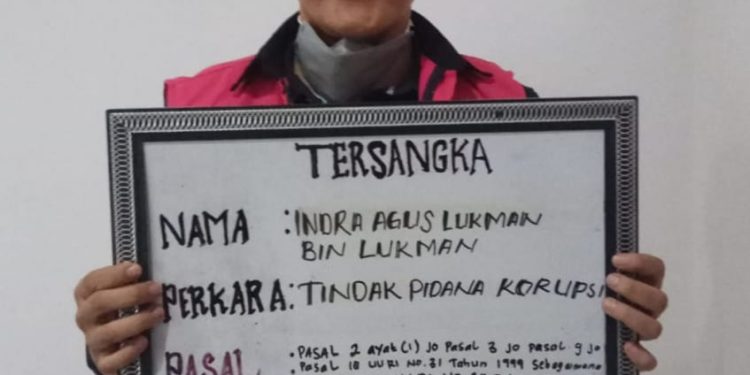 TERSANGKA
NAMA : INDRA AGUS LUKMAN
BIN LUKMAN
PERKARA : TINDAK PIDANA KORUPSI
PASAL . PASAL 2 ayat (1) jo Pasal 3 jo pasal 9 jo
. Pasal 18 UU RI NO. 31 Tahun 1999 Sebagaimana